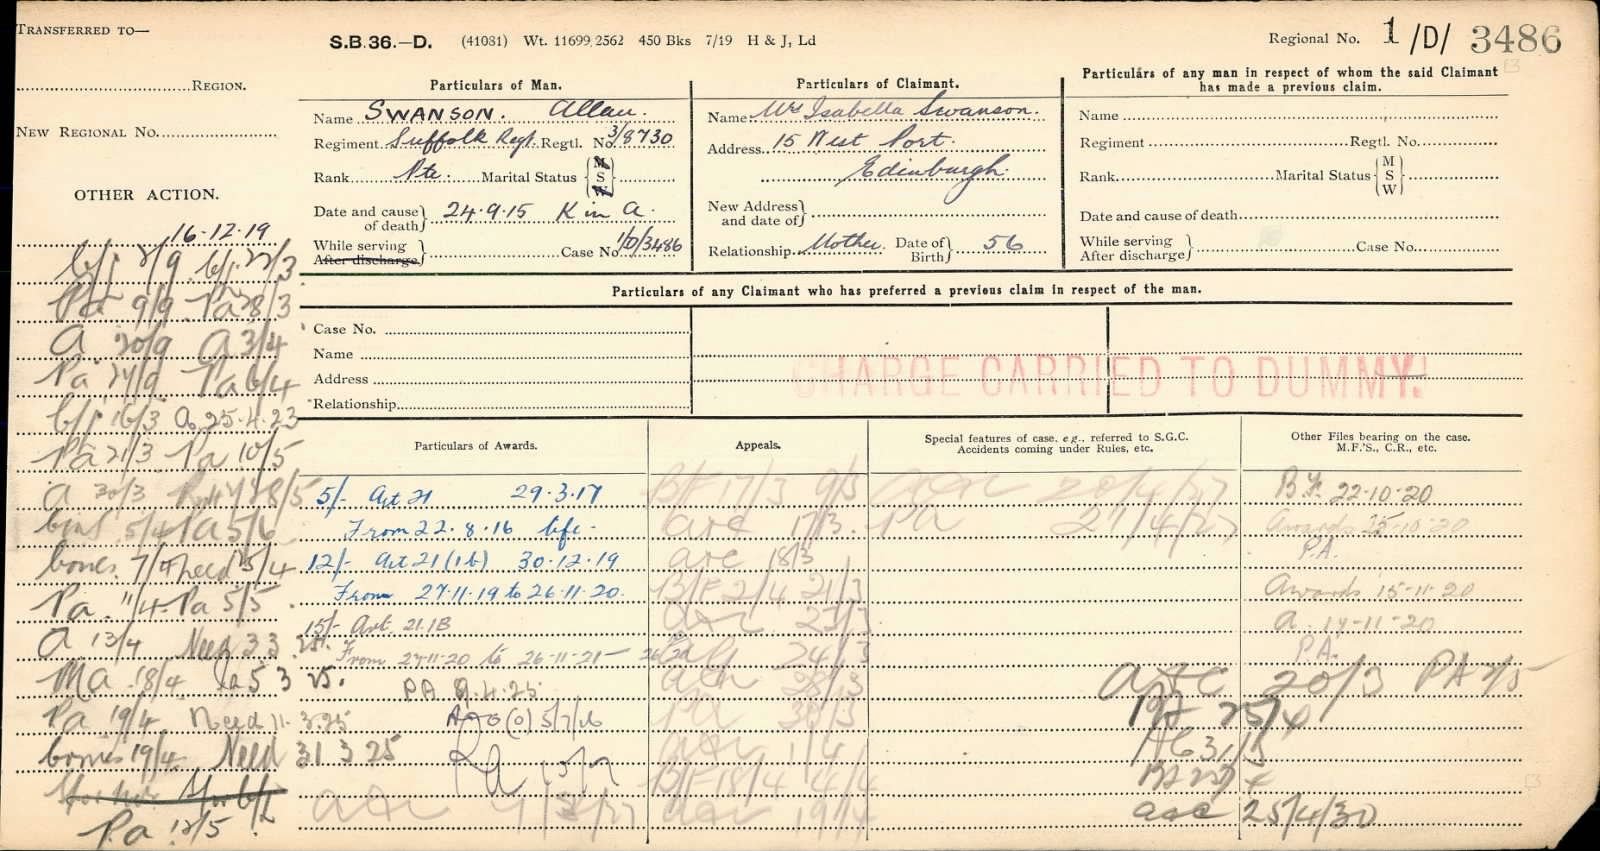 TRANSFERRED TO—
REGION.
NEW REGIONAL No.
OTHER ACTION.
S.B.36.—D. (41081) Wt. 11699/2562 450 Bks 7/19 H & J, Ld
Regional No. 1/D/ 3486
Particulars of Man.
Name SWANSON. Allan.
Regiment Suffolk Regt. Regtl. No. 3/8730
Rank Pte. Marital Status { M S W }
Date and cause of death } 24.9.15 K in A.
While serving
After discharge } Case No. 1/D/3486
Particulars of Claimant.
Name Mrs Isabella Swanson.
Address 15 West Port.
Edinburgh.
New Address and date of }
Relationship Mother. Date of Birth } 56
Particulars of any man in respect of whom the said Claimant
has made a previous claim.
Name
Regiment Regtl. No.
Rank Marital Status { M S W }
Date and cause of death
While serving
After discharge } Case No.
Particulars of any Claimant who has preferred a previous claim in respect of the man.
Case No.
Name
Address
Relationship
CHARGE CARRIED TO DUMMY.
16.12.19
b/f 2/9 b/f 22/3
Pa 9/9 Pa 28/3
A 20/9 A 3/4
Pa 24/9 Pa 6/4
b/f 16/3 A 25.4.23
Pa 21/3 Pa 10/5
a 30/3 28/5
5/4 Pa 5/6
bones 7/4 15/4
Pa 11/4 Pa 5/5
A 13/4 Need 3 3 25.
Ma 18/4 5 3 25.
Pa 19/4 Need 11.3.25
bones 19/4 Need 31 3 25
Pa 12/5
Particulars of Awards.
5/- Art 21 29.3.17
From 22.8.16 life.
12/- Art 21 (1b) 30.12.19
From 27.11.19 to 26.11.20.
15/- Art. 21.1B
From 27-11-20 to 26-11-21
PA 9.4.25
(0) 5/7/26
Appeals.
B/F 17/3 9/3
17/3.
18/3
B/F 2/4 21/3
23/3
24/3
28/3
PA 30/3
1/4
B/F 18/4 4/4
19/4
Special features of case, e.g., referred to S.G.C.
Accidents coming under Rules, etc.
20/4/27
PA 27/4/27
Other Files bearing on the case.
M.F.'S., C.R., etc.
B.F. 22-10-20
Awards 25-10-20
P.A.
Awards 15-11-20
a. 17-11-20
P.A.
20/3 PA 2/5
25/4
31/5
25/4/30